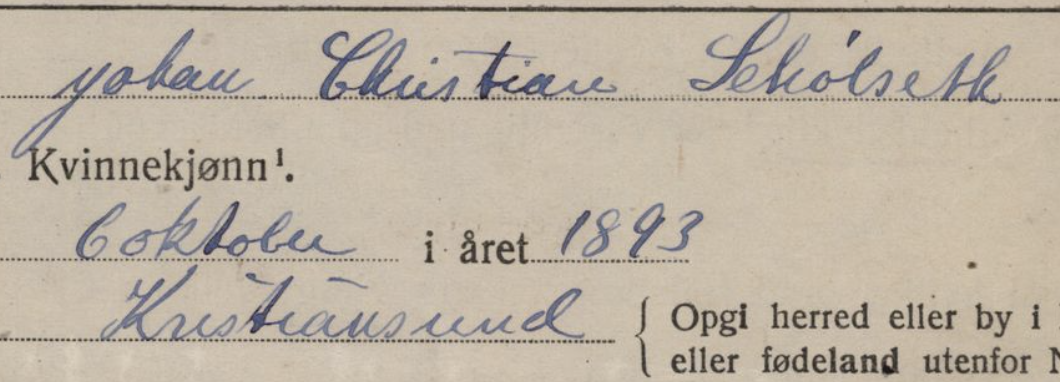 yohan Christian Schölseth
Kvinnekjønn¹.
6 oktober i året 1893
Kristiansund { Opgi herred eller by i
eller fødeland utenfor N